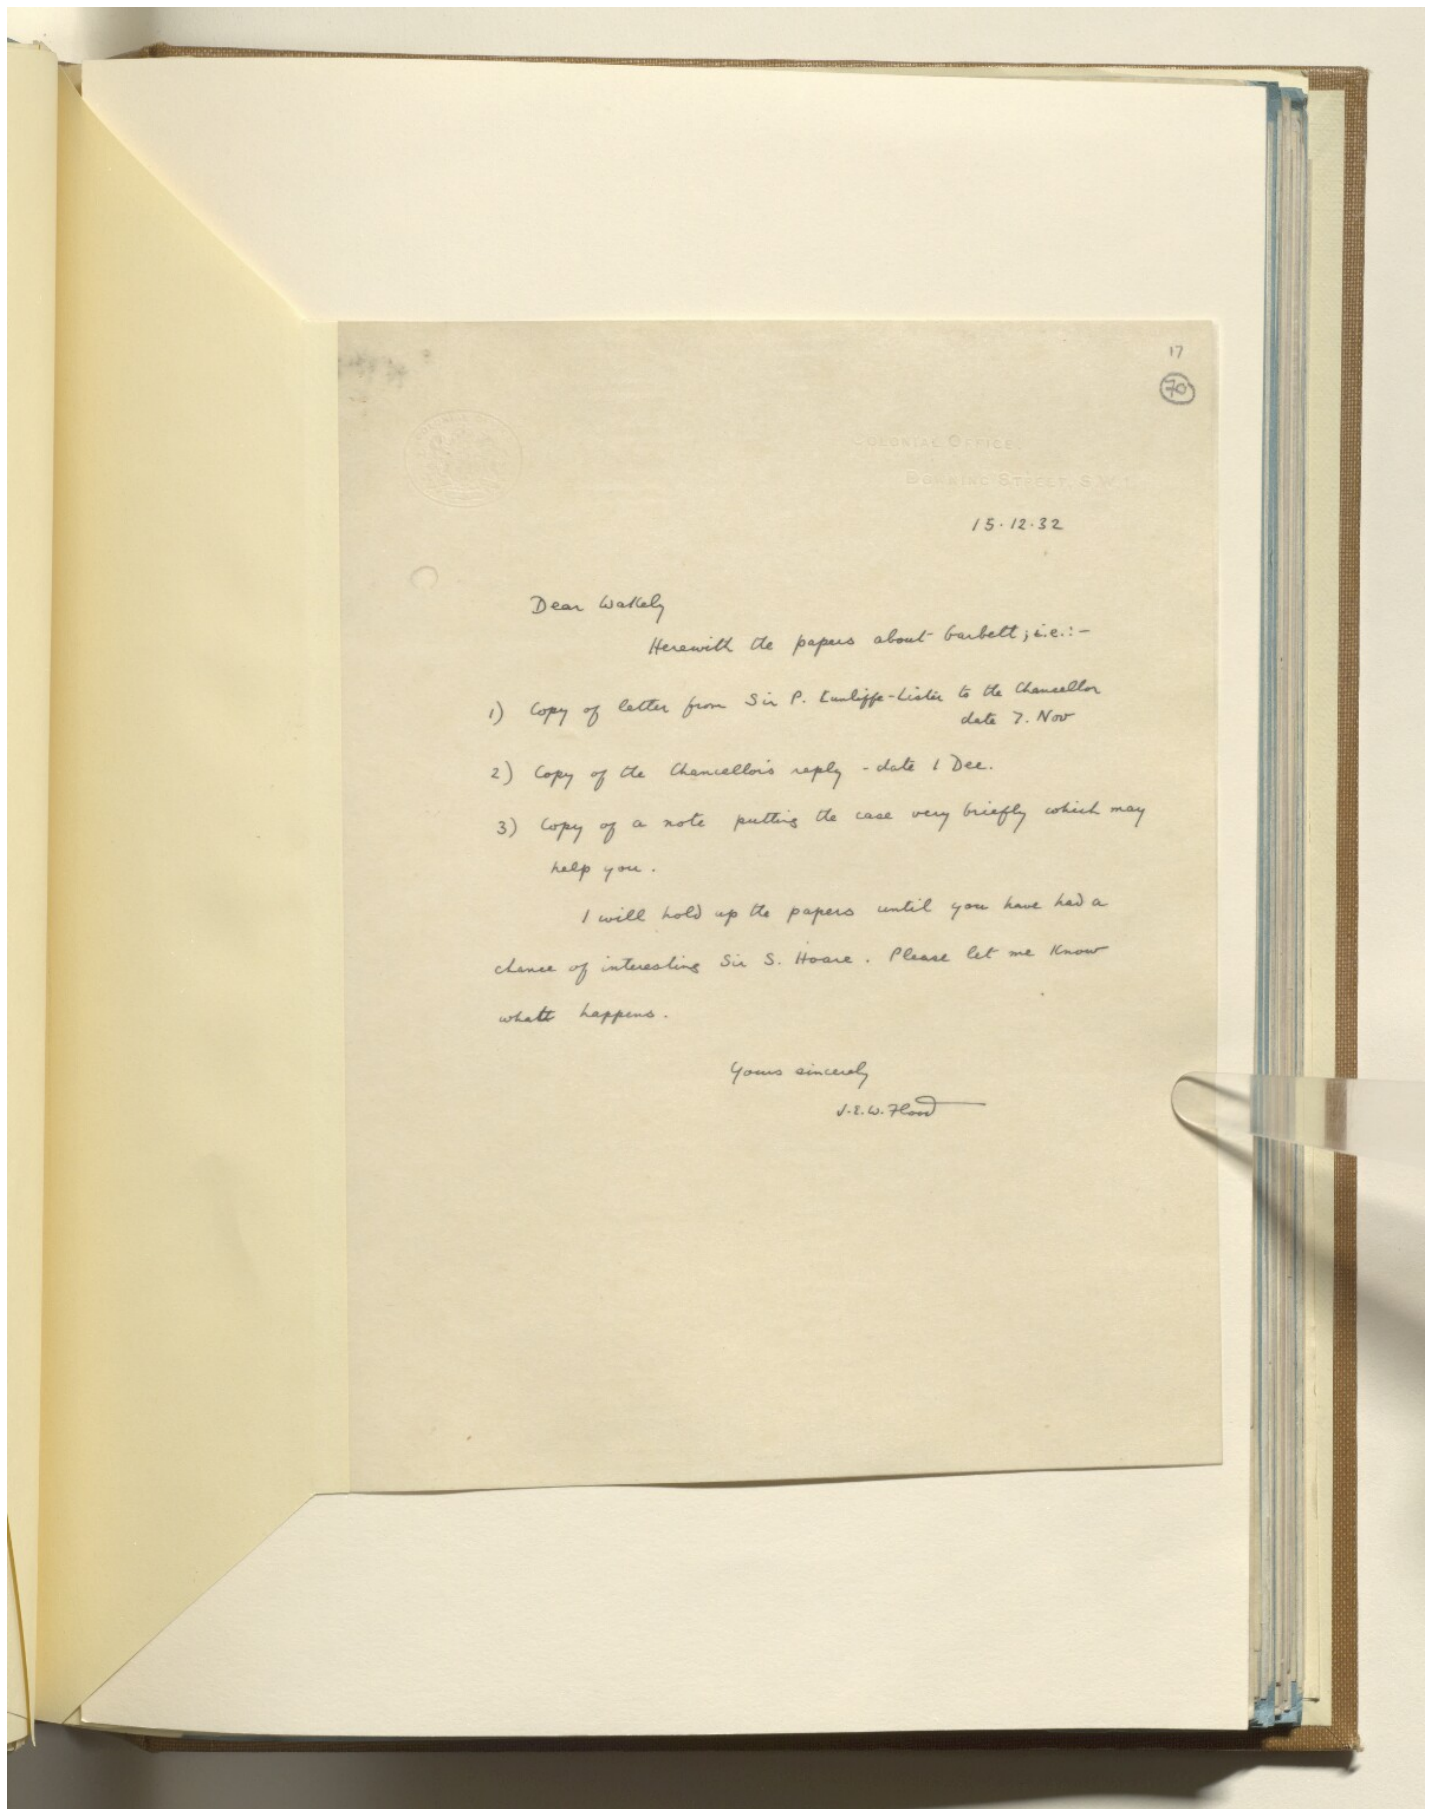 17
70
COLONIAL OFFICE,
DOWNING STREET, S.W.1.
15.12.32
Dear Wakely
Herewith the papers about Garbett; i.e.:-
1) Copy of letter from Sir P. Cunliffe-Lister to the Chancellor
date 7. Nov
2) Copy of the Chancellor's reply - date 1 Dec.
3) Copy of a note putting the case very briefly which may
help you.
I will hold up the papers until you have had a
chance of interesting Sir S. Hoare. Please let me know
what happens.
Yours sincerely
J.E.W. Flood